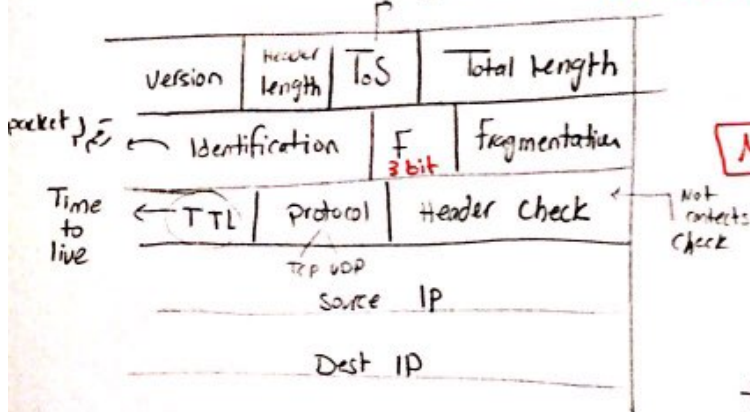 Version Header Length ToS Total Length
packet رقم ← Identification F 3 bit Fragmentation
Time to live ← TTL Protocol Header Check ← Not contects check
TCP UDP
Source IP
Dest IP